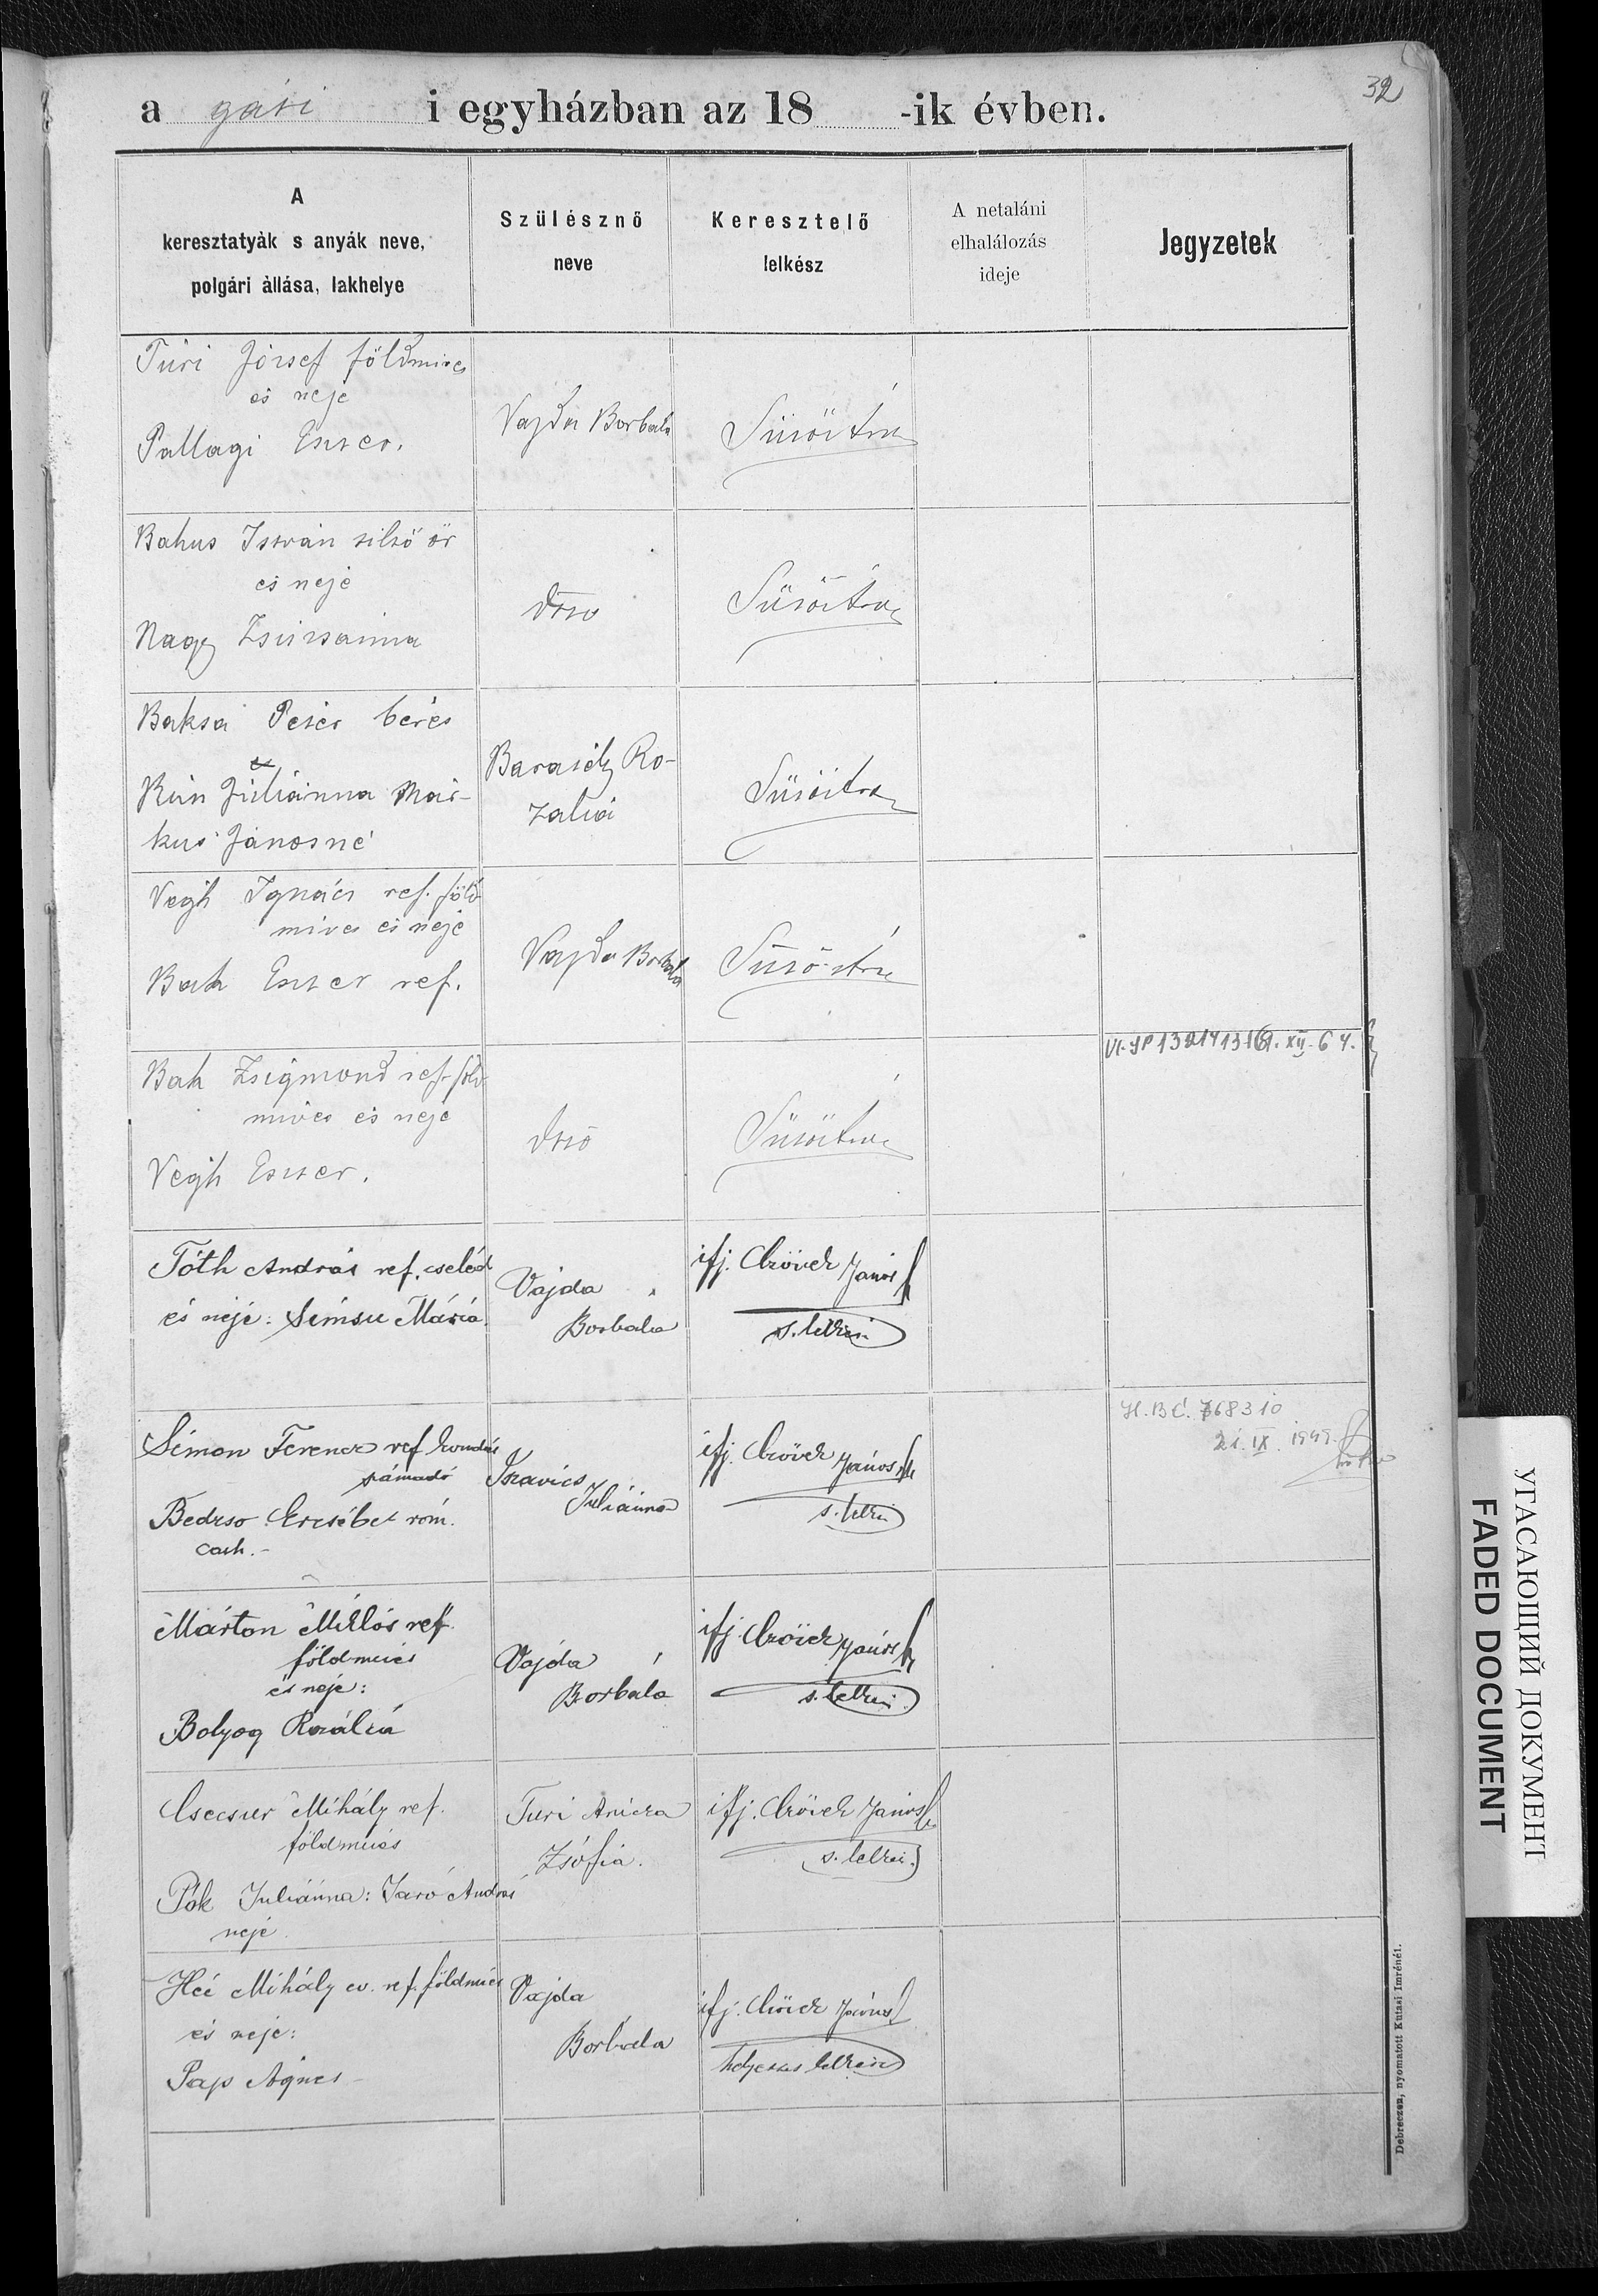 32
a gáti i egyházban az 18 -ik évben.
A
keresztatyák s anyák neve,
polgári állása, lakhelye
Szülésznő
neve
Keresztelő
lelkész
A netaláni
elhalálozás
ideje
Jegyzetek
Túri József földmives
és neje
Pallagi Eszter.
Vajda Borbala
Bahus István silső őr
és neje
Nagy Zsuzsanna
dtto
Baksa Péter béres
és
Kún Juliánna Már-
kus Jánosné
Ro-
zalia
Végh Ignácz ref. föld
mives és neje
Bah Eszter ref.
Vajda Borbala
Bah Zsigmond ref. föld
mives és neje
Végh Eszter.
dtto
Tóth András ref. cseléd
és neje: Simsu Mária.
Vajda
Borbala
ifj. Czövek János
s. lelkész
Simon Ferencz ref kondás
számadó
Bedzso Erzsébet róm.
cath.
Juliánna
ifj. Czövek János
s. lelkész
21. IX. 1949.
Márton Miklós ref.
földmives
és neje:
Bolyog Rozália
Vajda
Borbála
ifj. Czövek János
s. lelkész
Csecsur Mihály ref.
földmives
Pók Juliánna: Jaró András
neje
Turi Anicza
Zsófia.
ifj. Czövek János
s. lelkész
Héi Mihály ev. ref. földmives
és neje:
Pap Ágnes
Vajda
Borbála
ifj. Czövek János
helyettes lelkész
Debreczen, nyomatott Kutasi Imrénél.
УГАСАЮЩИЙ ДОКУМЕНТ
FADED DOCUMENT